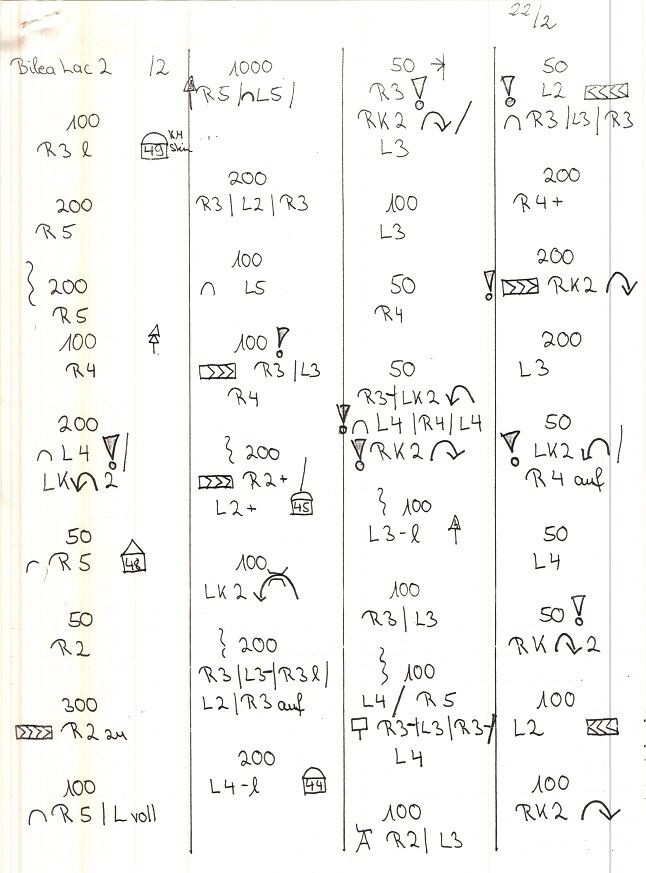 22/2
Bilea Lac 2 12
100
R3 l 49 KM Stein
200
R5
200
R5
100
R4
200
∩ L4 ! /
LK 2
50
R5 48
50
R2
300
>>>> R2 zu
100
∩ R5 | L voll
1000
R5 | ∩ L5 |
200
R3 | L2 | R3
100
∩ L5
100 !
>>> R3 | L3
R4
200
>>> R2+ /
L2+ 45
100
LK2
200
R3 | L3- | R3 l |
L2 | R3 auf
200
L4-l 44
50
R3 !
RK2 /
L3
100
L3
50
R4
50
R3- | LK2
! ∩ L4 | R4 | L4
! RK2
100
L3-l
100
R3 | L3
100
L4 / R5
R3- | L3 | R3- /
L4
100
R2 | L3
50
! L2 <<<<
∩ R3 | L3 | R3
200
R4+
200
! >>> RK2
200
L3
50
! LK2 /
R4 auf
50
L4
50 !
RK 2
100
L2 <<<
100
RK2